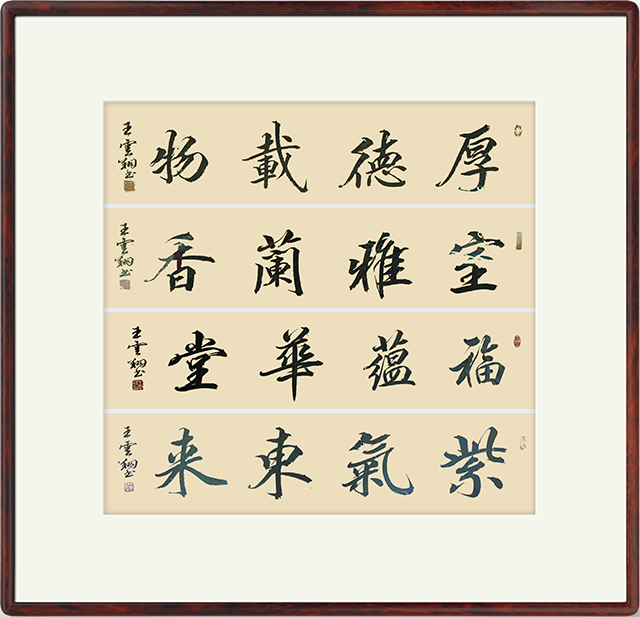 厚德載物
王雲翔书
室雅蘭香
王雲翔书
福蘊華堂
王雲翔书
紫氣東来
王雲翔书